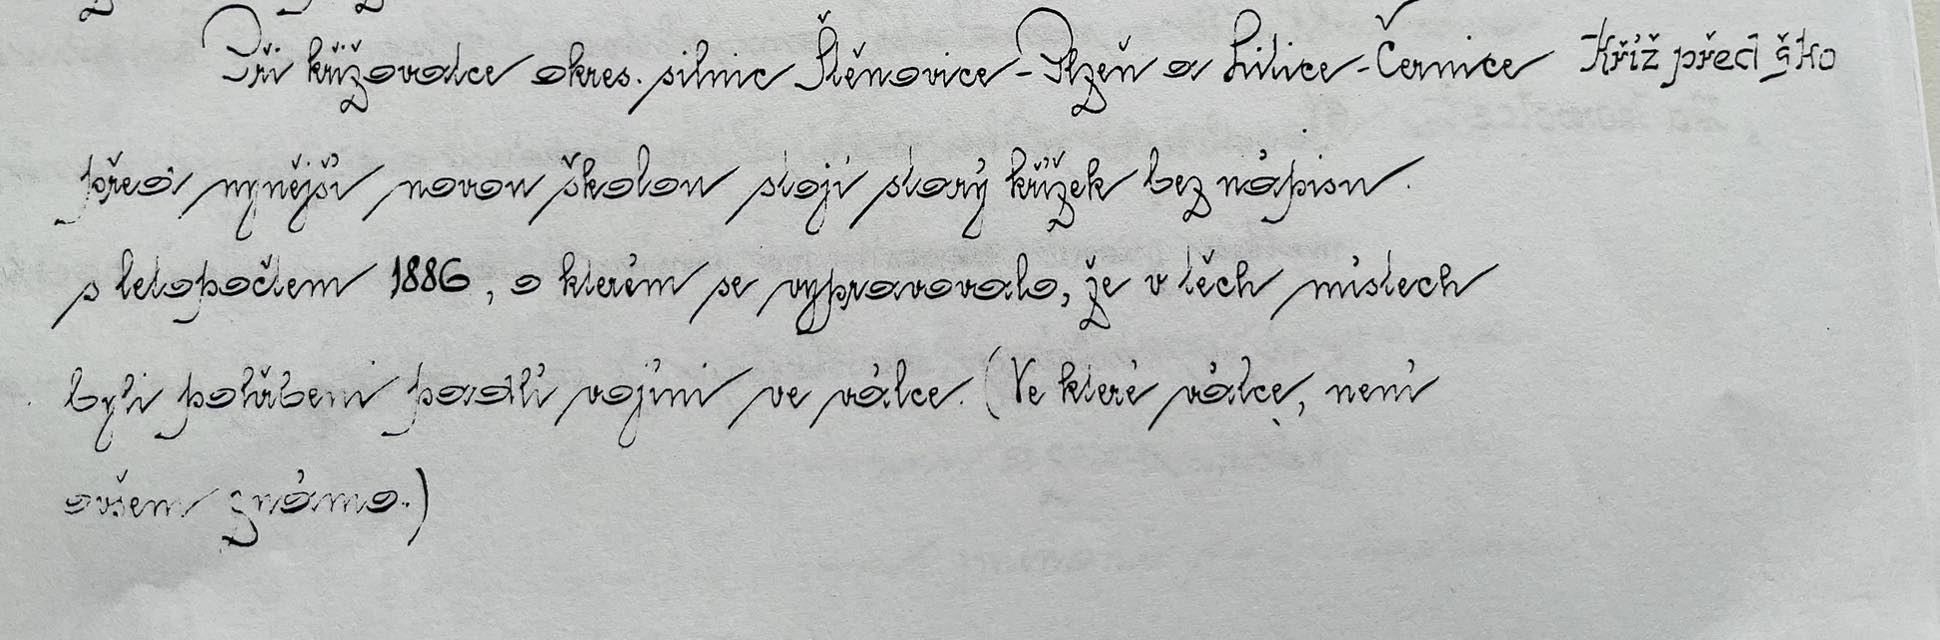 Při křižovatce okres. silnic Štěnovice-Plzeň a Litice-Černice Kříž před ško
před nynější novou školou stojí starý křížek bez nápisu
s letopočtem 1886, o kterém se vypravovalo, že v těch místech
byli pohřbeni padlí vojíni ve válce. (Ve které válce, není
ovšem známo.)